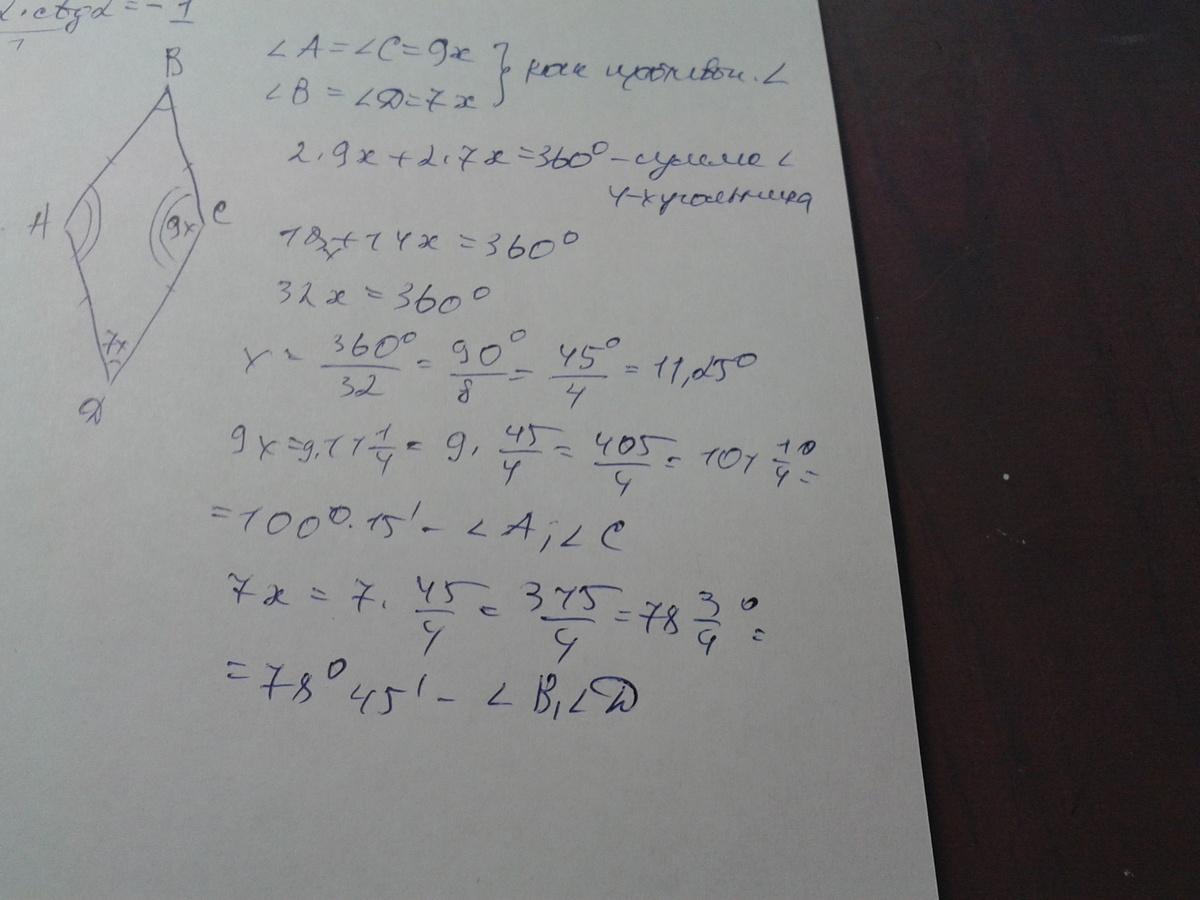 ctgα = - 1
B
A
C
9x
7x
D
∠A = ∠C = 9x
∠B = ∠D = 7x } как противоп. ∠
2.9x + 2.7x = 360° - сумма ∠
4-хугольника
18x + 14x = 360°
32x = 360°
x = 360°/32 = 90°/8 = 45°/4 = 11,25°
9x = 9.11 1/4 = 9. 45/4 = 405/4 = 101 1/4° =
= 100°.15' - ∠A, ∠C
7x = 7. 45/4 = 315/4 = 78 3/4° =
= 78°45' - ∠B, ∠D